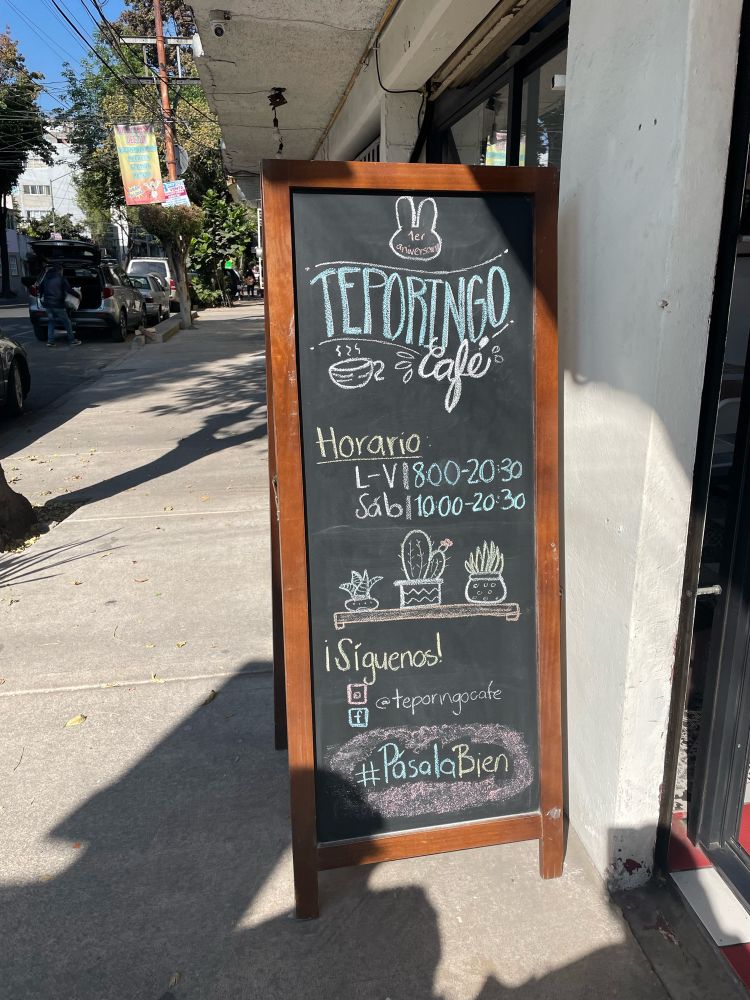 1er
aniversario
TEPORINGO
Café
Horario:
L-V|8:00-20:30
Sáb|10:00-20:30
¡Síguenos!
@teporingocafe
f
#PásalaBien